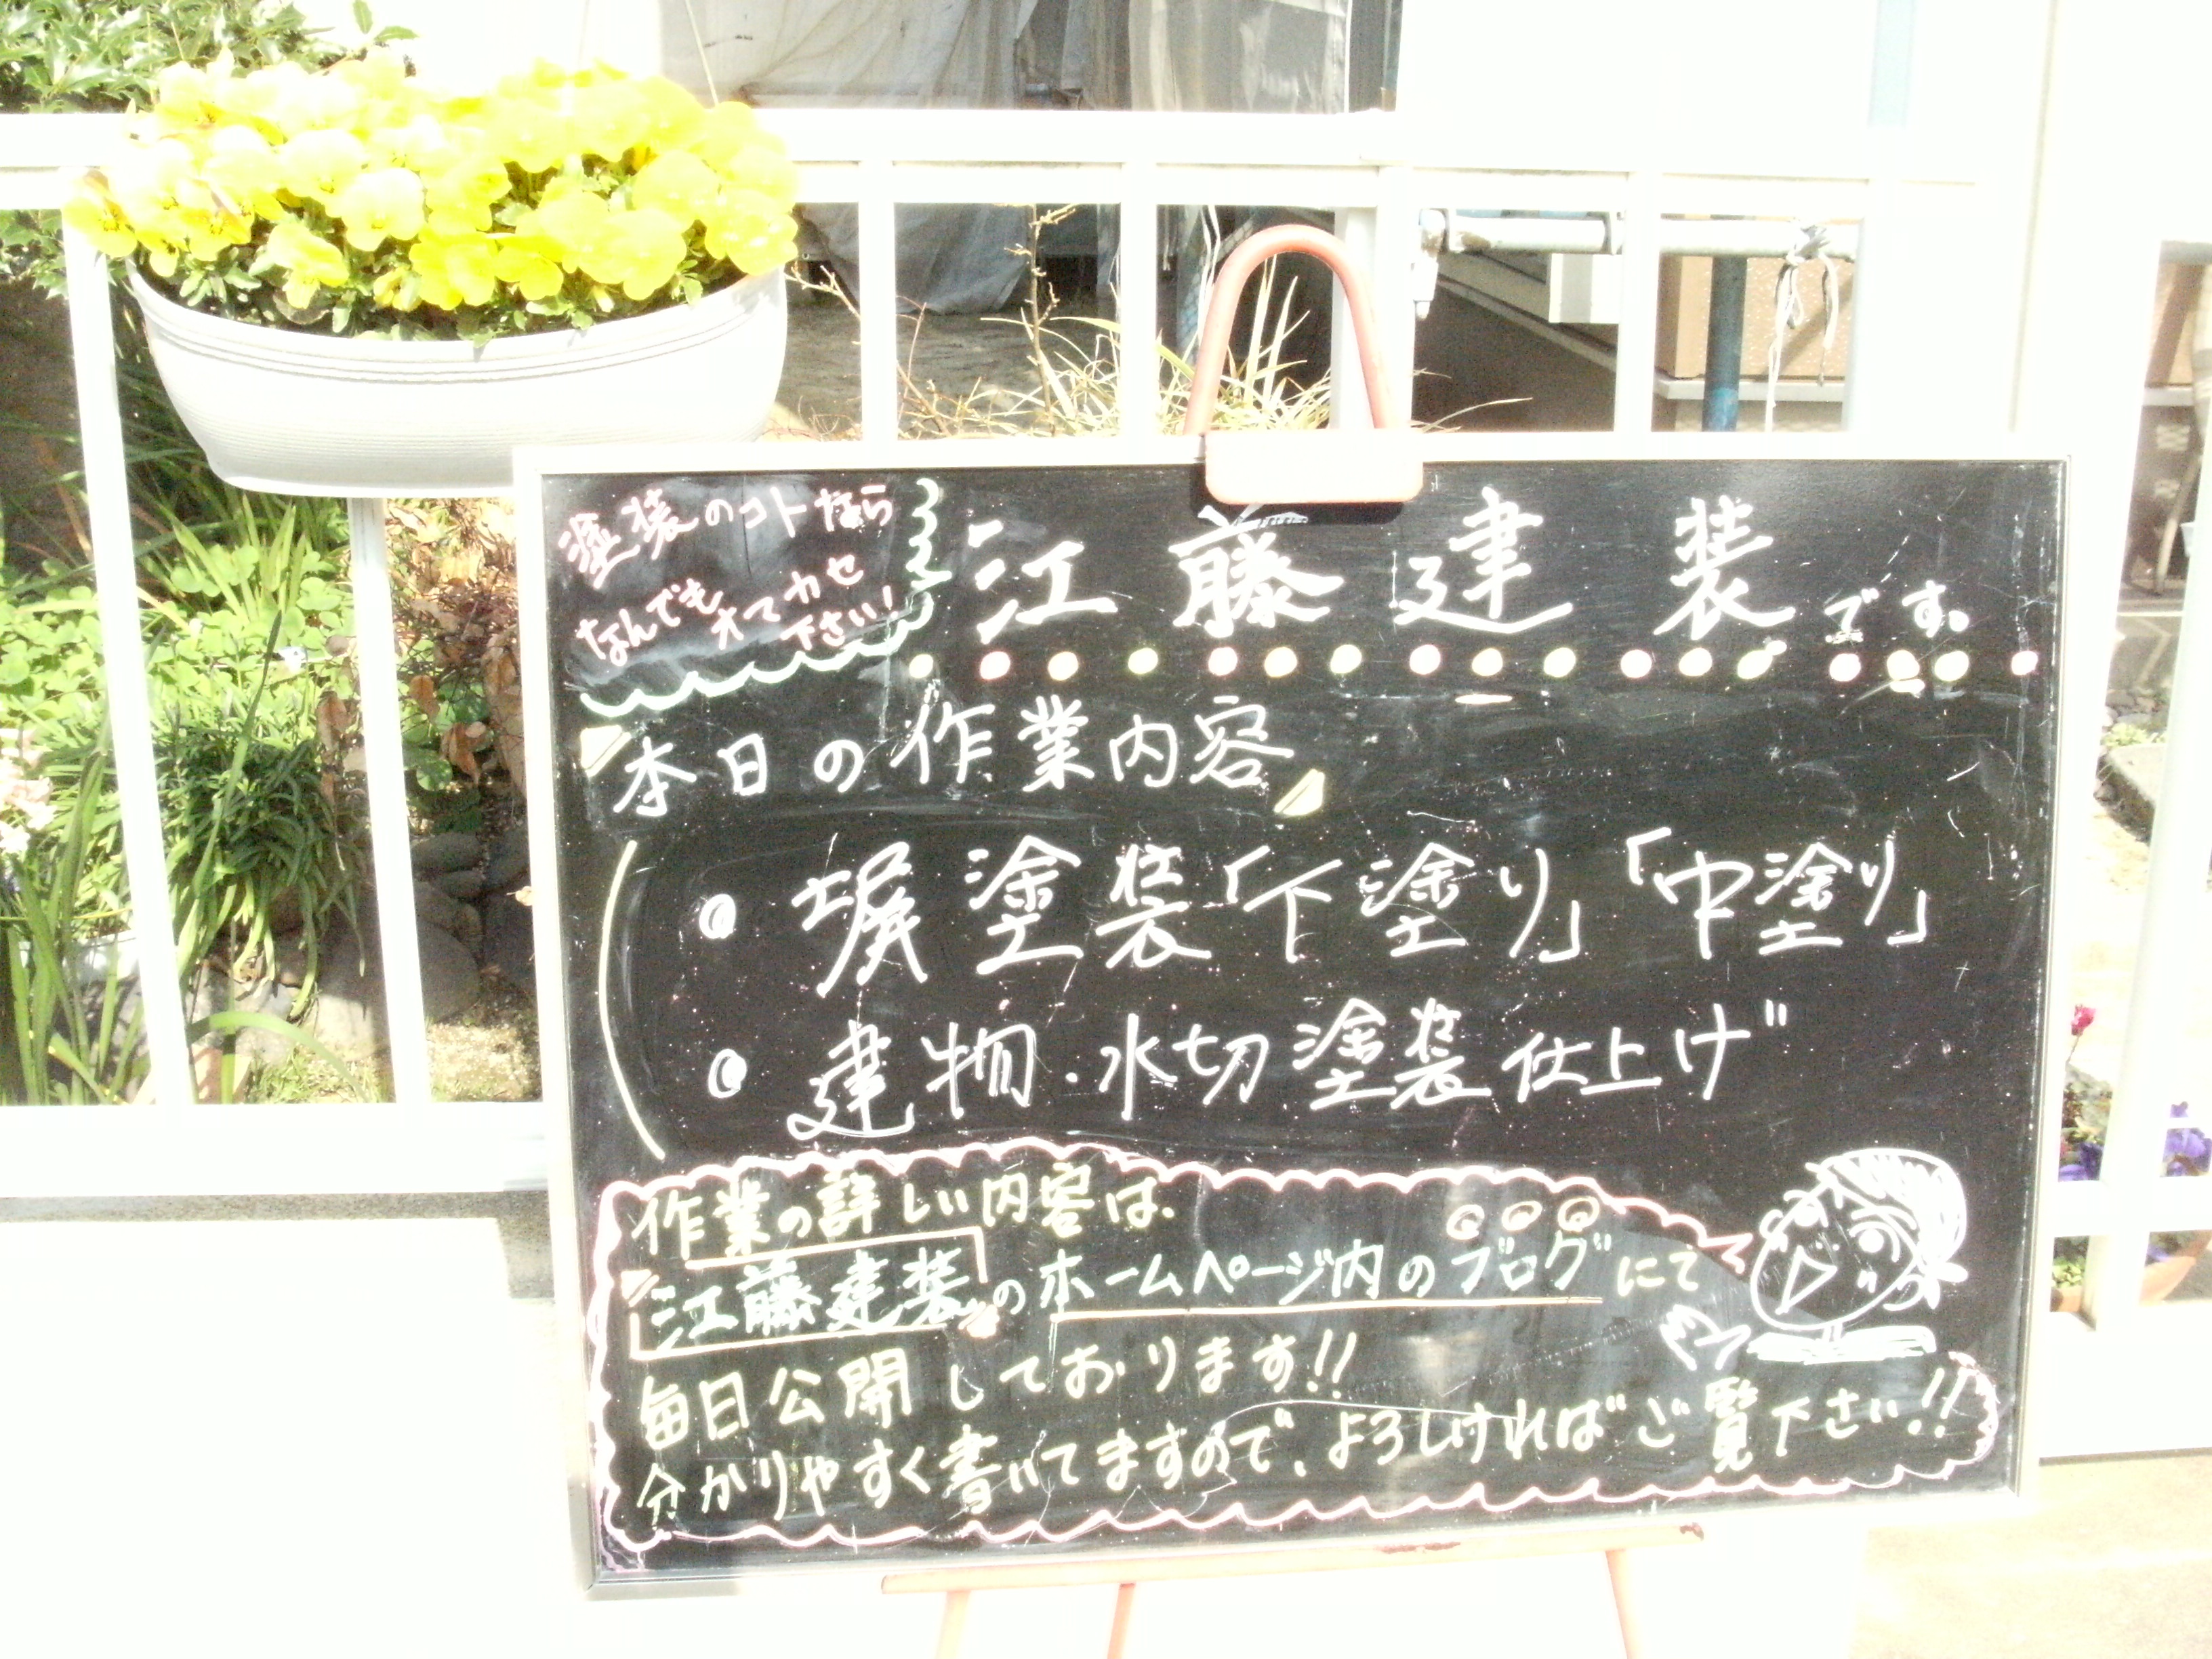 塗装のコトなら
なんでもオマカセ
下さい!
江藤建装です。
本日の作業内容
・塀塗装「下塗り」「中塗り」
・建物・水切塗装仕上げ
作業の詳しい内容は、
江藤建装のホームページ内のブログにて
毎日公開しております!!
分かりやすく書いてますので、よろしければご覧下さい!!